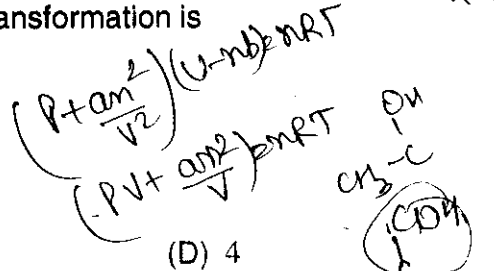 ansformation is
(P + an²/V²)(V-nb) = nRT
(PV + an²/V) = nRT
OH
CH₃-C
COOH
(D) 4